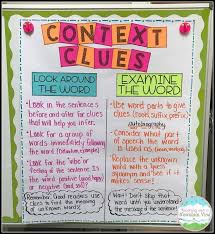 CONTEXT
CLUES
LOOK AROUND
THE WORD
• Look in the sentences
before and after for clues
that will help you infer.
• Look for a group of
words immediately following
the word
• Look for the "vibe" or
feeling of the sentence. Is
the word positive (good, happy)
or negative (bad, sad)?
Remember: Good readers use
clues to find the meaning
EXAMINE
THE WORD
• Use word parts to give
clues (roots, suffix, prefix)
• Consider what part
of speech the word
is used as
• Replace the unknown
word with a guess
synonym and see if it
makes sense.
Don't skip that
word until you understand
the message of the sentence!